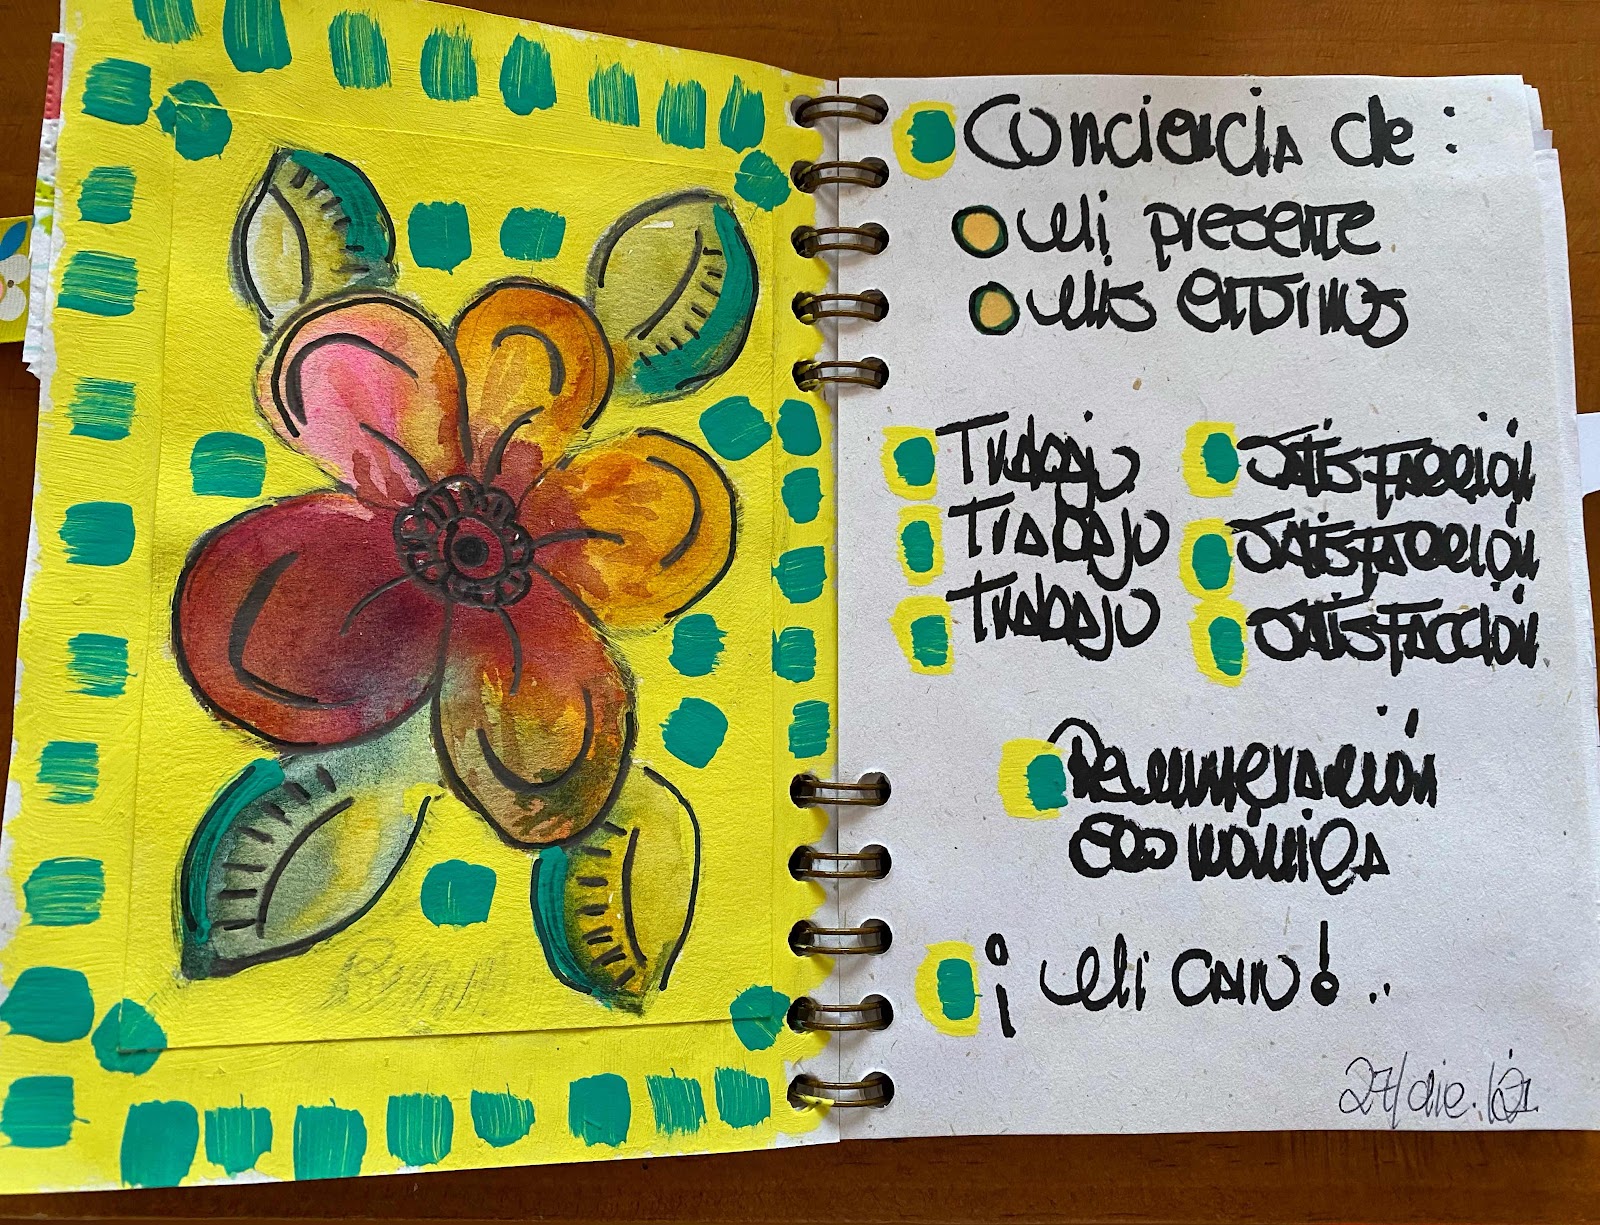 Conciencia de :
Mi presente
Mis
Trabajo Satisfacción
Trabajo Satisfacción
Trabajo Satisfacción
Remuneración
económica
¡ Mi ! ..
27/dic./21.